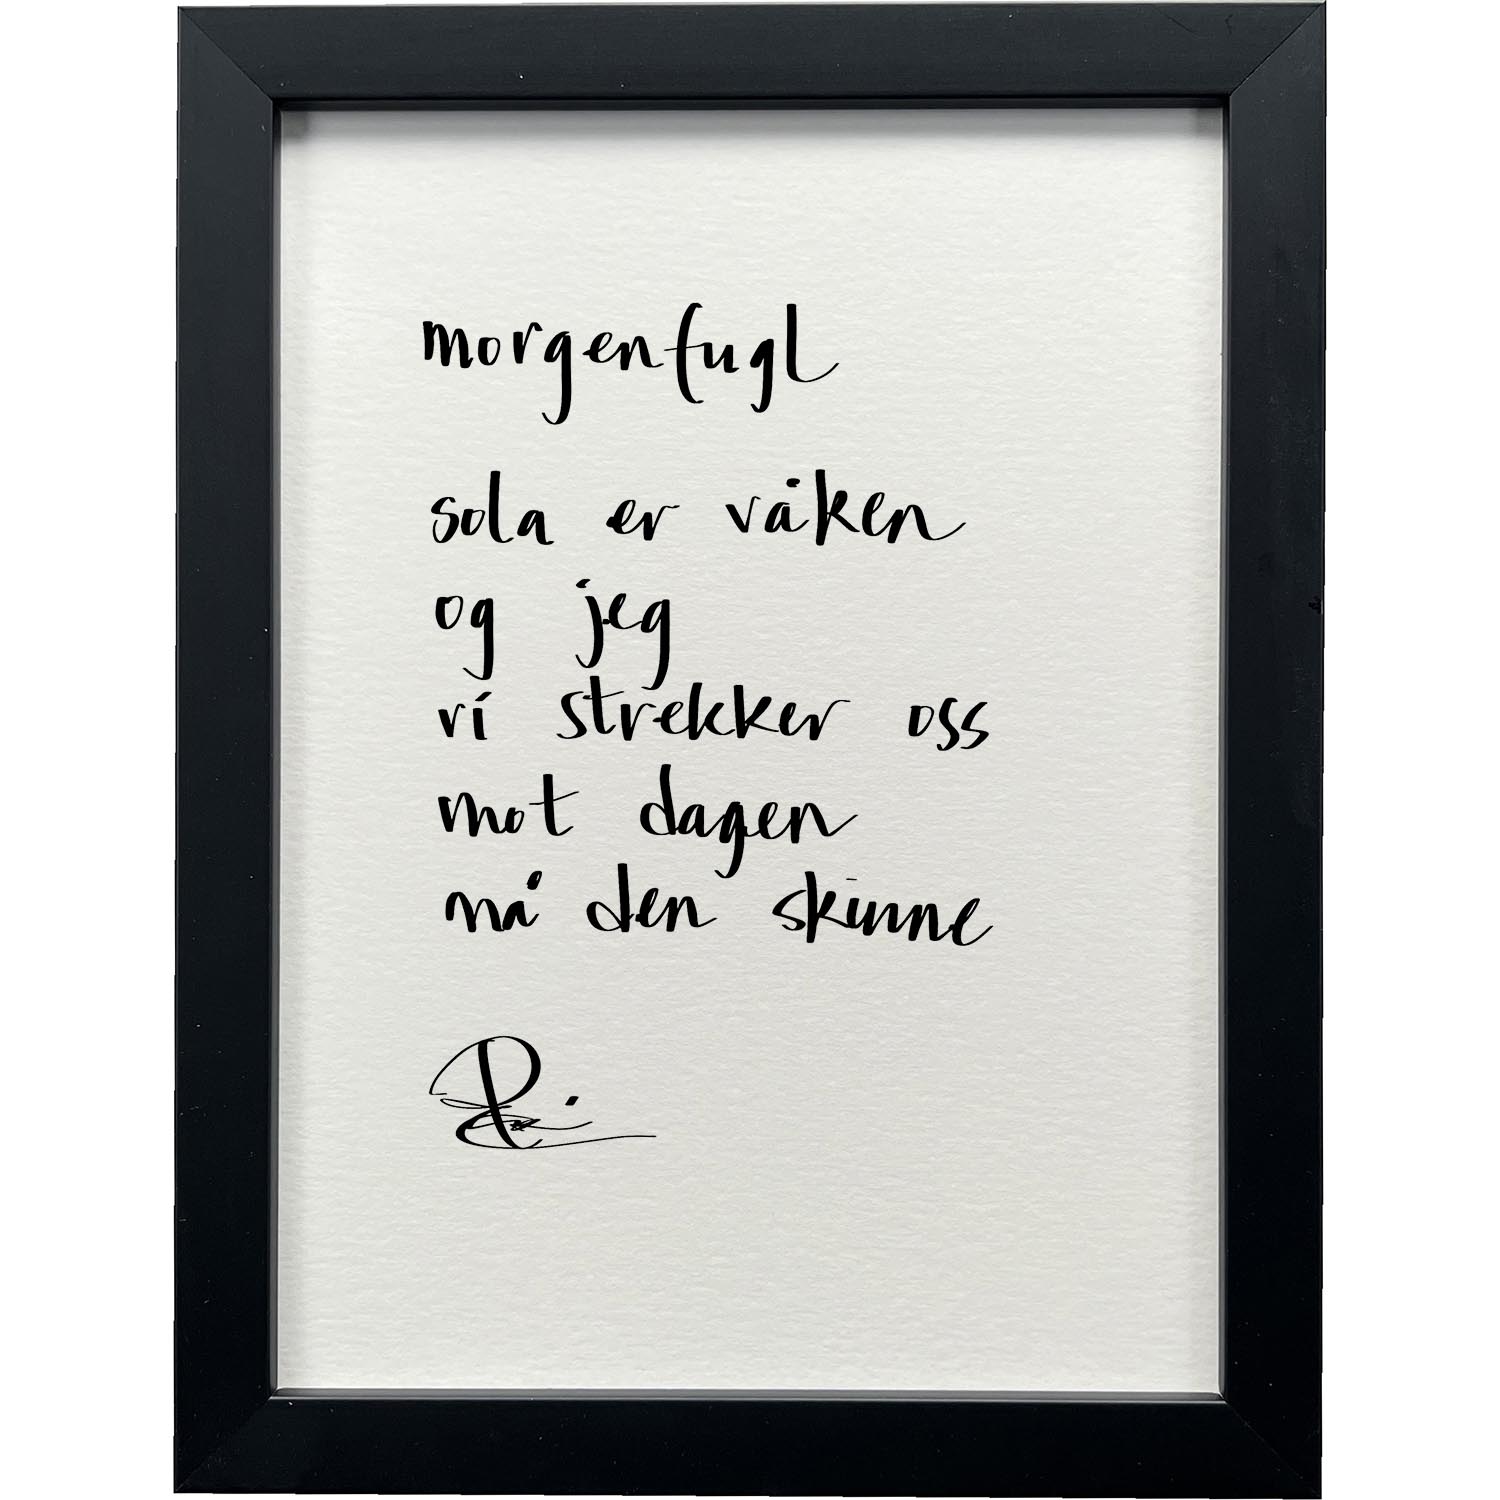 morgenfugl
sola er våken
og jeg
vi strekker oss
mot dagen
må den skinne